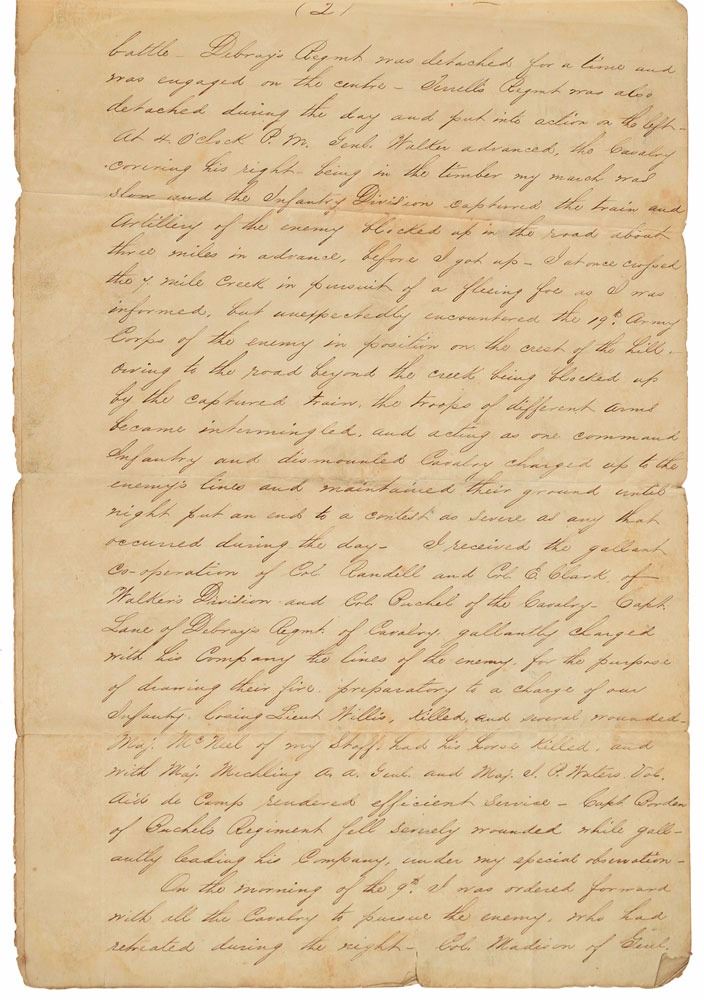 (2)
battle - Debray's Regmt was detached for a time and
was engaged on the centre - Terrell's Regmt was also
detached during the day and put into action on the left -
At 4. O'Clock P. M. Genl. Walker advanced, the Cavalry
covering his right - being in the timber my march was
slow and the Infantry Division captured the train and
Artillery of the enemy blocked up in the road about
three miles in advance, before I got up - I at once crossed
the 7 mile Creek in pursuit of a fleeing foe as I was
informed, but unexpectedly encountered the 19th Army
Corps of the enemy in position on the crest of the hill -
owing to the road beyond the creek being blocked up
by the captured train, the troops of different arms
became intermingled, and acting as one command
Infantry and dismounted Cavalry charged up to the
enemy's lines and maintained their ground until
night put an end to a contest as severe as any that
occurred during the day - I received the gallant
co-operation of Col. Randell and Col. E. Clark, of
Walker's Division and Col. Buchel of the Cavalry - Capt.
Lane of Debray's Regmt. of Cavalry, gallantly charged
with his Company the lines of the enemy, for the purpose
of drawing their fire, preparatory to a charge of our
Infantry, losing Lieut Willis, killed, and several wounded -
Maj. McNeel of my Staff, had his horse killed, and
with Maj. Mechling A. A. Genl. and Maj. J. P. Waters Vol.
Aid de Camp rendered efficient service - Capt Borden
of Buchels Regiment fell severely wounded while gall-
antly leading his Company, under my special observation -
On the morning of the 9th I was ordered forward
with all the Cavalry to pursue the enemy, who had
retreated during the night - Col. Madison of Genl.